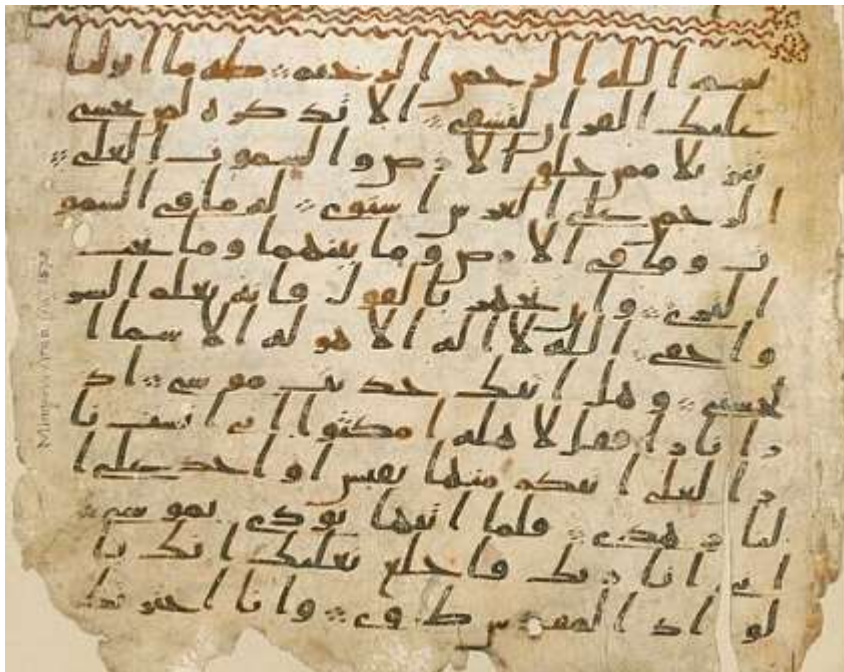 بسم الله الرحمن الرحيم طه ما انزلنا
عليك القران لتشقى الا تذكره لمن يخشى
تنزيلا ممن خلق الارض والسموت العلى
الرحمن على العرش استوى له ما في السمو
ت وما في الارض وما بينهما وما تحت
الثرى وان تجهر بالقول فانه يعلم السر
واخفى الله لا اله الا هو له الاسما ا
لحسنى وهل اتيك حديث موسى اذ
را نارا فقال لاهله امكثوا اني انست نا
را لعلي اتيكم منها بقبس او اجد على ا
لنار هدى فلما اتيها نودي يموسى
اني انا ربك فاخلع نعليك انك با
لواد المقدس طوى وانا اخترتك
Mingana Arab 1572